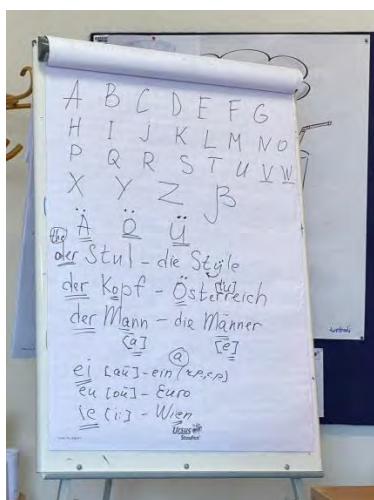 A B C D E F G
H I J K L M N O
P Q R S T U V W
X Y Z β
Ä Ö Ü
the
der Stul - die Style
der Kopf - Österreich
der Mann - die Männer
[a] [e]
a
ei [aй] - ein
eu [oй] - Euro
ie [i:] - Wien
Ursus